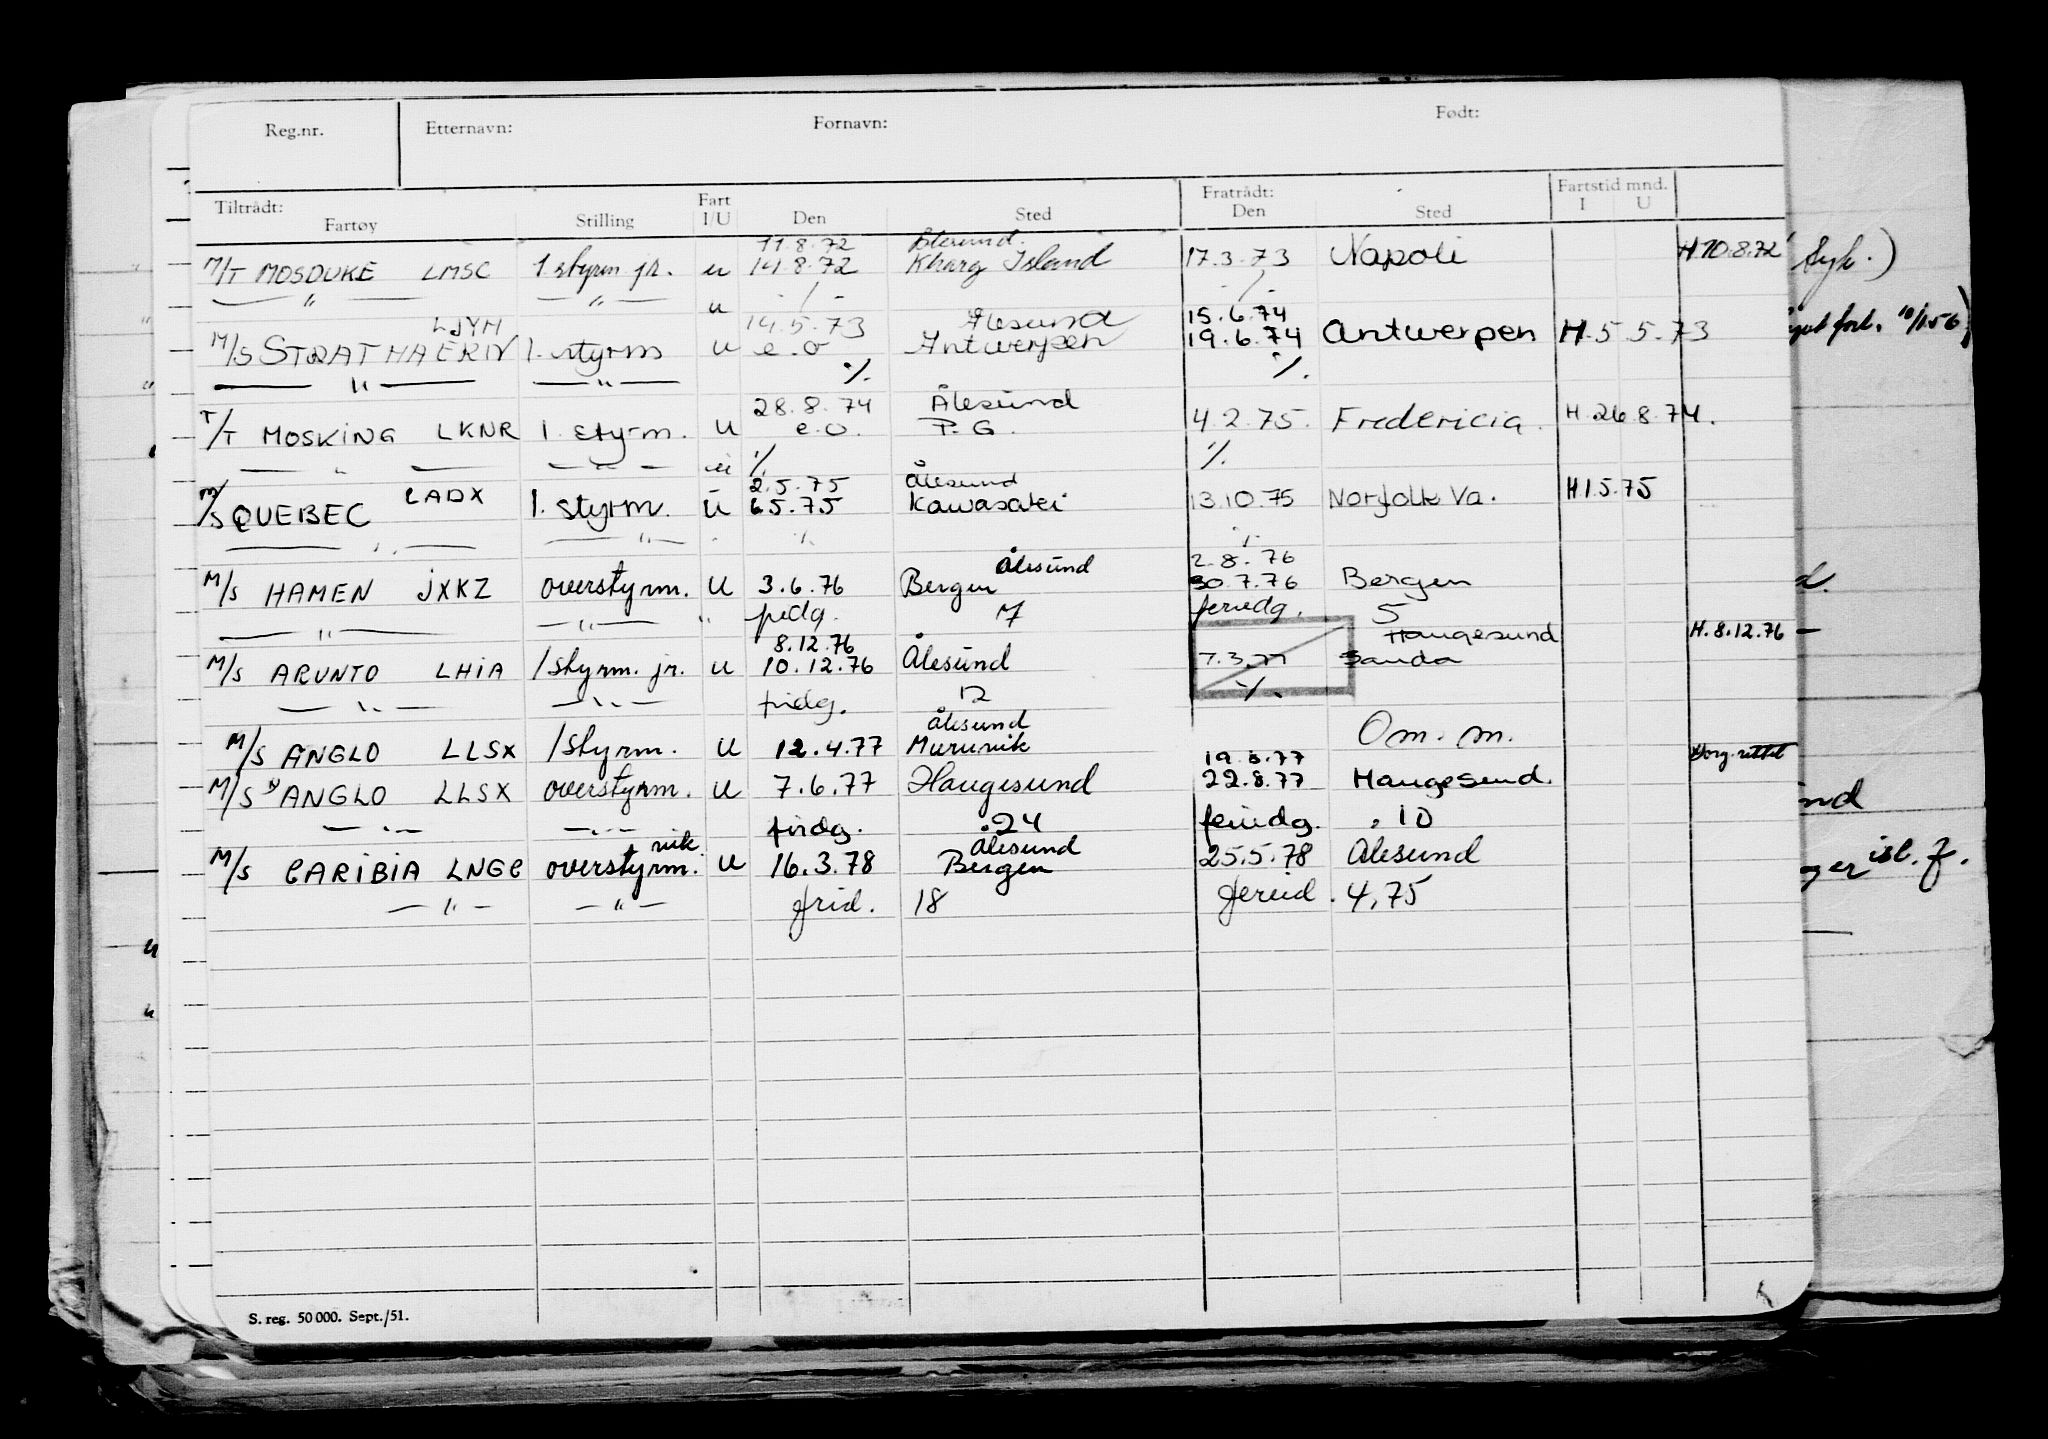 Reg.nr. Etternavn: Fornavn: Født:
Tiltrådt: Fart Fratrådt: Fartstid mnd.
Fartøy Stilling I/U Den Sted Den Sted I U
11.8.72 Ålesund.
M/T MOSDUKE LMSC 1 styrm jr. u 14.8.72 Kharg Island 17.3.73 Napoli H 10.8.72 Syk.)
— " — — " — u ./. ./.
LJYM 14.5.73 Ålesund 15.6.74
M/S STRATHAERIN 1. styrm u e.o Antwerpen 19.6.74 Antwerpen H.5 5.73
— " — — " — ./. ./.
28.8.74 Ålesund
T/T MOSKING LKNR 1. styrm. U e.o. P.G. 4.2.75. Fredericia. H.26.8.74.
— " — — " — u ./. ./.
LADX 2.5.75 Ålesund
M/S QUEBEC 1. styrm. U 6.5.75 Kawasaki 13.10.75 Norfolk Va. H.1.5.75
— " — — " — ./. ./.
Ålesund 2.8.76
M/S HAMEN JXKZ overstyrm. U 3.6.76 Bergen 30.7.76 Bergen
— " — — " — " 7 feriedg. 5
8.12.76 Haugesund H.8.12.76 —
M/S ARUNTO LHIA 1styrm. jr. U 10.12.76 Ålesund 7.3.77 Sauda
— " — — " — fridg. 12 ./.
Ålesund Om. m.
M/S ANGLO LLSX 1styrm. U 12.4.77 Muruvik 19.8.77
M/S " ANGLO LLSX overstyrm. U 7.6.77 Haugesund 22.8.77 Haugesund.
— " — — " — fridg. .24 feriedg. , 10
vik. Ålesund
M/S CARIBIA LNGC overstyrm. U 16.3.78 Bergen 25.5.78 Ålesund
— " — — " — frid. 18 feried. 4,75
S. reg. 50 000. Sept./51.